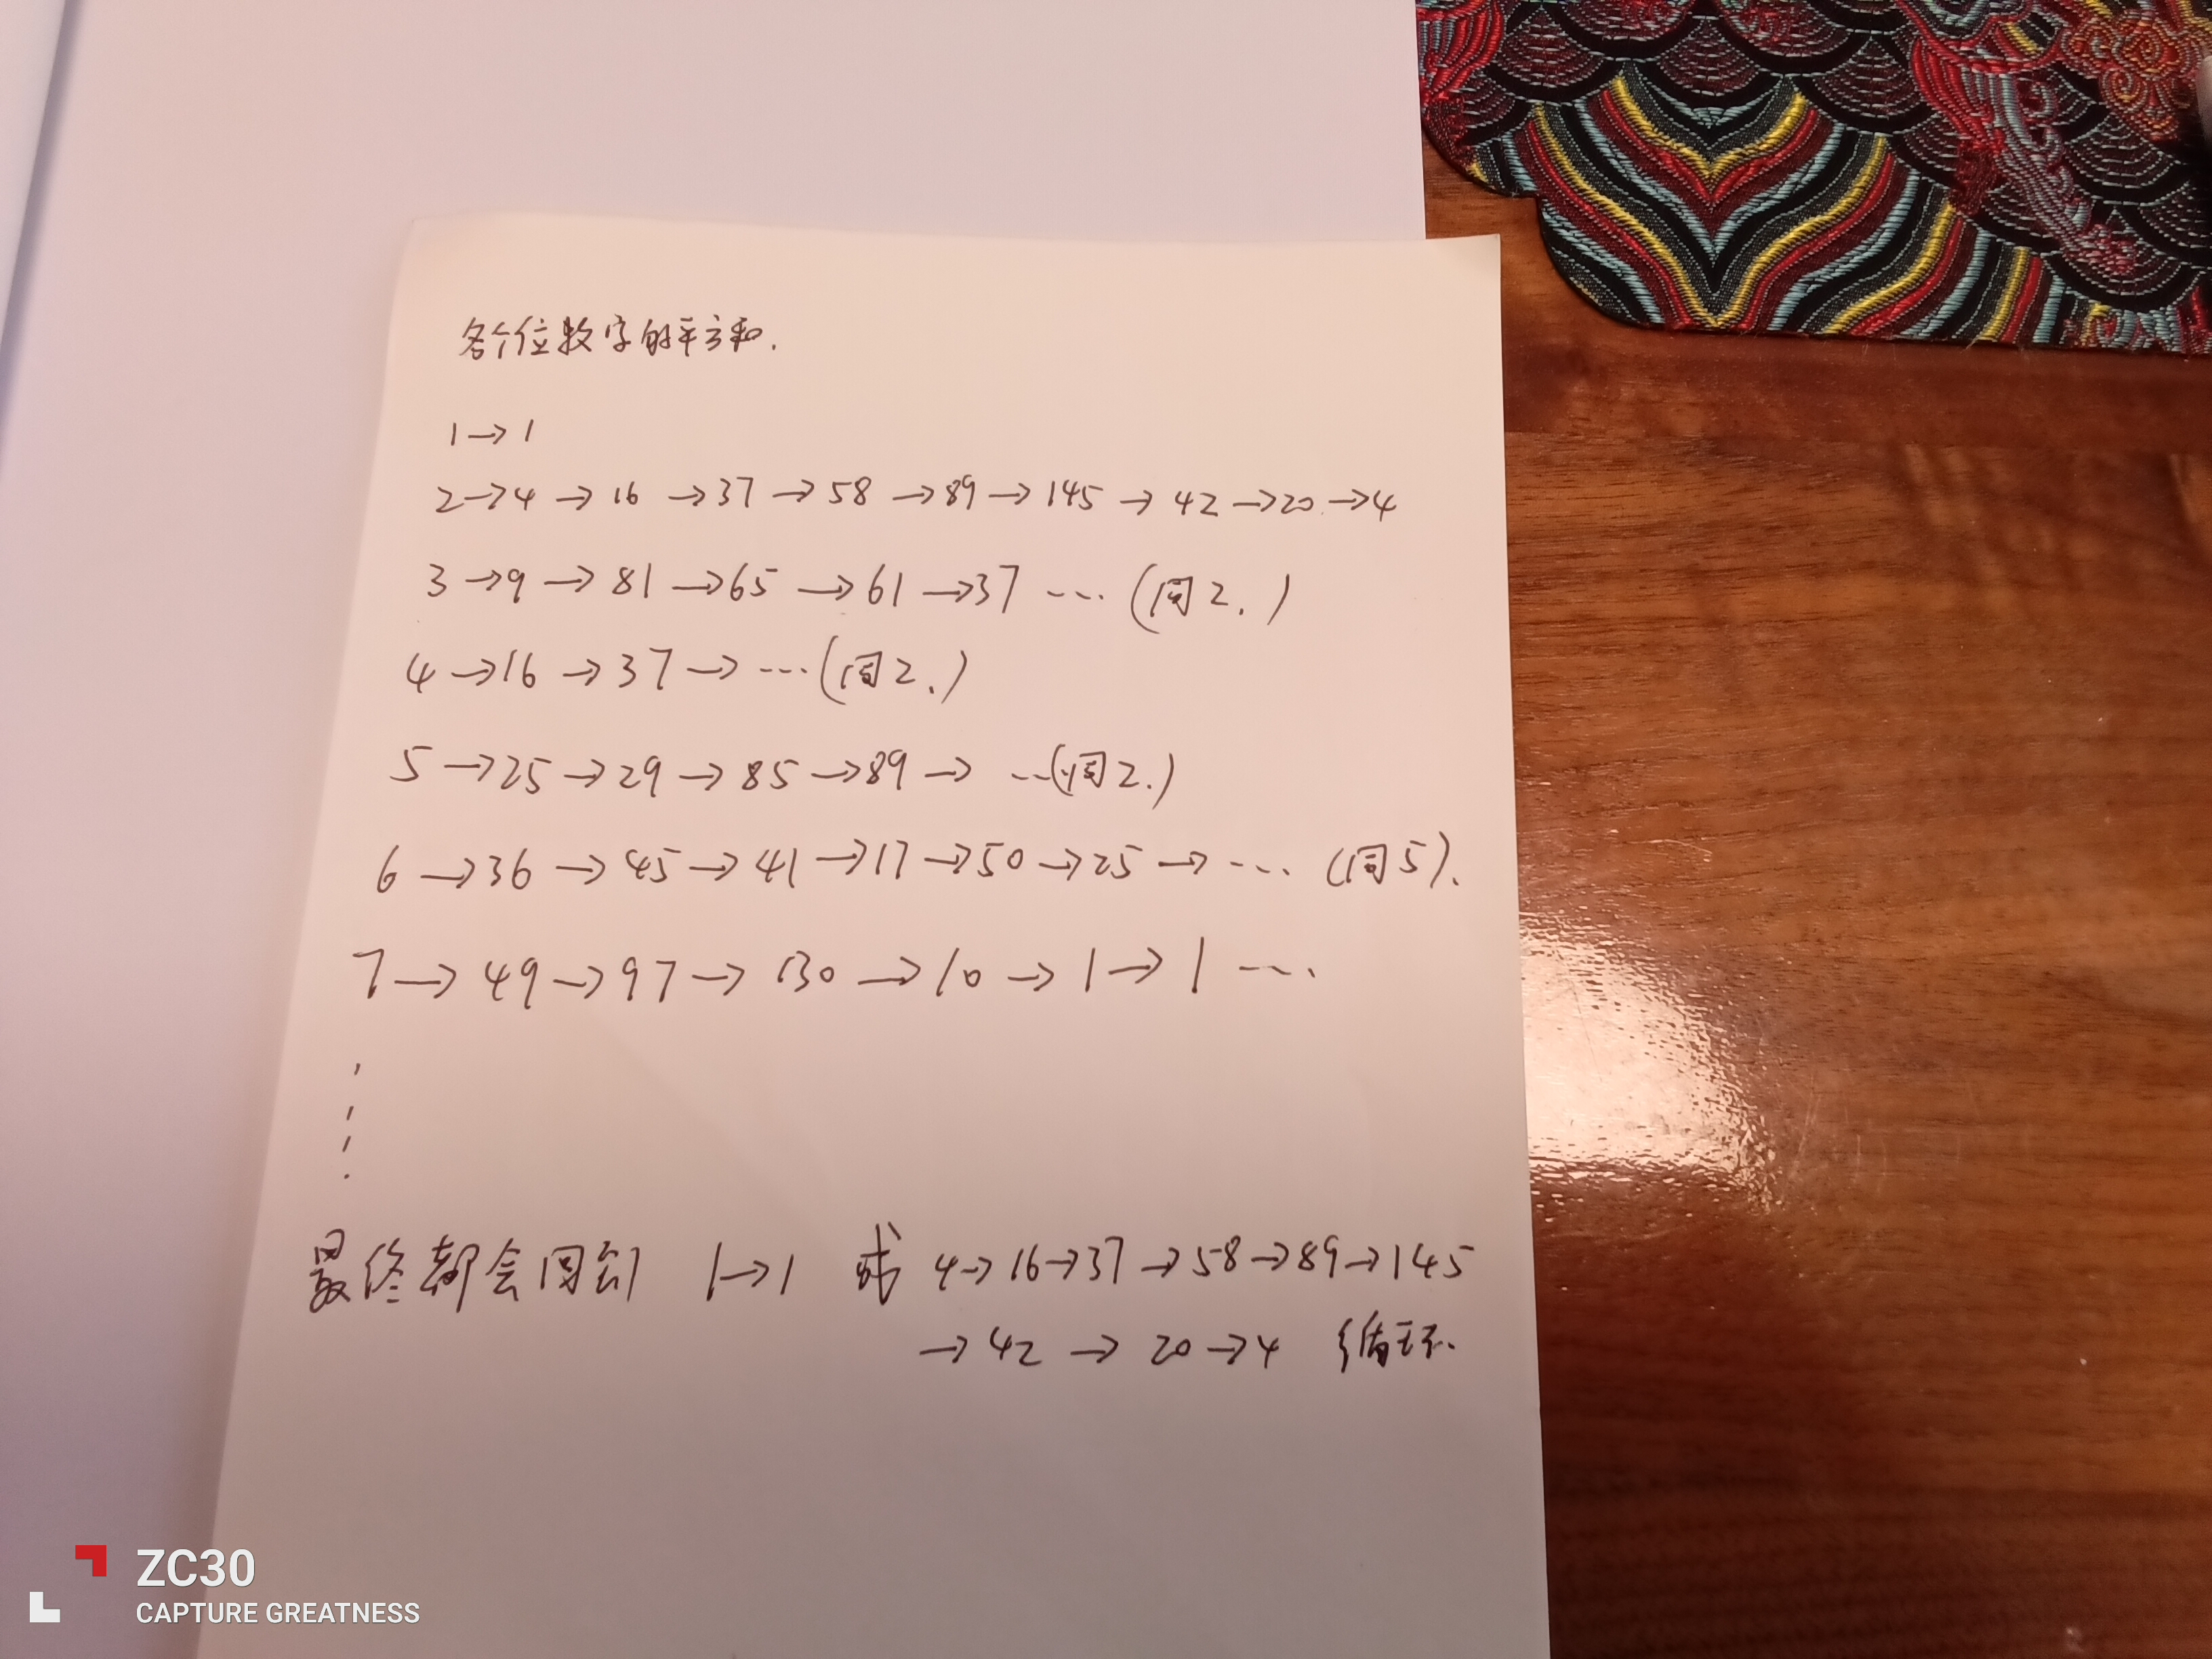 各个位数字的平方和.
1→1
2→4→16→37→58→89→145→42→20→4
3→9→81→65→61→37 ---- (同2.)
4→16→37→ ---- (同2.)
5→25→29→85→89→ ---(同2.)
6→36→45→41→17→50→25→ ---- (同5).
7→49→97→130→10→1→1 ----
最终都会回到 1→1 或 4→16→37→58→89→145
→42→20→4 循环.
ZC30
CAPTURE GREATNESS